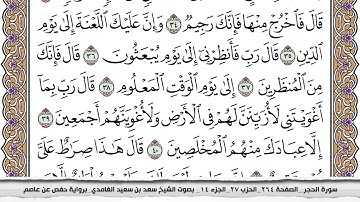 قَالَ فَاخْرُجْ مِنْهَا فَإِنَّكَ رَجِيمٌ ٣٤ وَإِنَّ عَلَيْكَ اللَّعْنَةَ إِلَى يَوْمِ
الدِّينِ ٣٥ قَالَ رَبِّ فَأَنظِرْنِي إِلَى يَوْمِ يُبْعَثُونَ ٣٦ قَالَ فَإِنَّكَ
مِنَ الْمُنظَرِينَ ٣٧ إِلَى يَوْمِ الْوَقْتِ الْمَعْلُومِ ٣٨ قَالَ رَبِّ بِمَا
أَغْوَيْتَنِي لَأُزَيِّنَنَّ لَهُمْ فِي الْأَرْضِ وَلَأُغْوِيَنَّهُمْ أَجْمَعِينَ ٣٩
إِلَّا عِبَادَكَ مِنْهُمُ الْمُخْلَصِينَ ٤٠ قَالَ هَٰذَا صِرَاطٌ عَلَيَّ
سورة الحجر_ الصفحة ٢٦٤_ الحزب ٢٧_ الجزء ١٤_ بصوت الشيخ سعد بن سعيد الغامدي_ برواية حفص عن عاصم